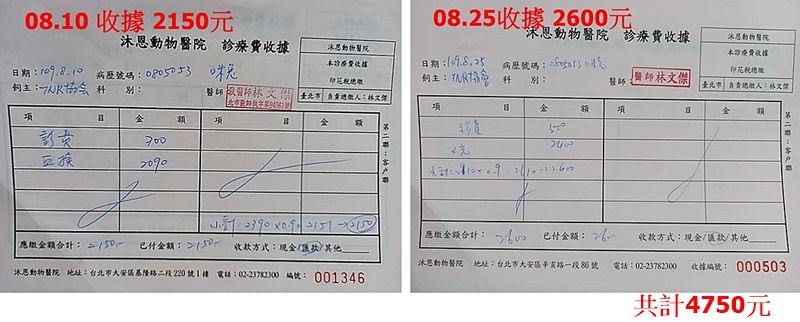 08.10 收據 2150元
沐恩動物醫院 診療費收據
沐恩動物醫院
本診療費收據
印花稅總繳
臺北市 負責總繳人:林文傑
日期:109.8.10 病歷號碼:0805053 咪兔
飼主:TNR協會 科 別: 醫師
獸醫師林文傑
項 目 金 額 項 目 金 額
診費 300
血檢 2090
小計:2390×0.90 2151→2150
應繳金額合計:2150- 已付金額:2150- 收款方式:現金/匯款/其他
第二聯:客戶聯
沐恩動物醫院 地址:台北市大安區基隆路二段220號1樓 電話:02-23782300 編號:001346
08.25收據 2600元
沐恩動物醫院 診療費收據
沐恩動物醫院
本診療費收據
印花稅總繳
臺北市 負責總繳人:林文傑
日期:109.8.25 病歷號碼:0805053 咪兔
飼主:TNR協會 科 別:
醫師林文傑
項 目 金 額 項 目 金 額
診費 500
2400
×0.9=2610→2600
應繳金額合計:2600 已付金額:2600 收款方式:現金/匯款/其他
第二聯:客戶聯
沐恩動物醫院 地址:台北市大安區辛亥路一段86號 電話:02-23782300 收據編號:000503
共計4750元